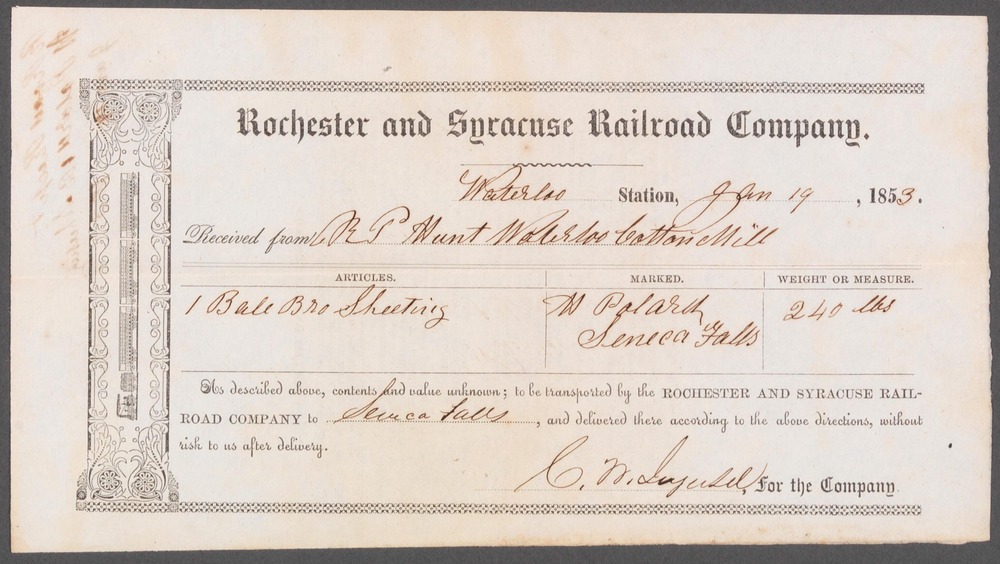 Rochester and Syracuse Railroad Company.
Waterloo Station, Jan 19, 1853.
Received from R P Hunt Waterloo Cotton Mill
ARTICLES. MARKED. WEIGHT OR MEASURE.
1 Bale Bro Sheeting M Polard 240 lbs
Seneca Falls
As described above, contents and value unknown; to be transported by the ROCHESTER AND SYRACUSE RAIL-
ROAD COMPANY to Seneca Falls, and delivered there according to the above directions, without
risk to us after delivery.
C. W. For the Company.